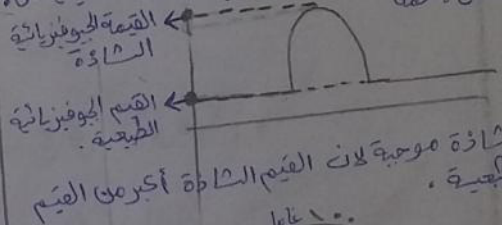 القيمة الجيوفيزيائية
الشاذة
القيم الجيوفيزيائية
الطبيعية .
شاذة موجبة لان القيم الشاذة أكبر من القيم